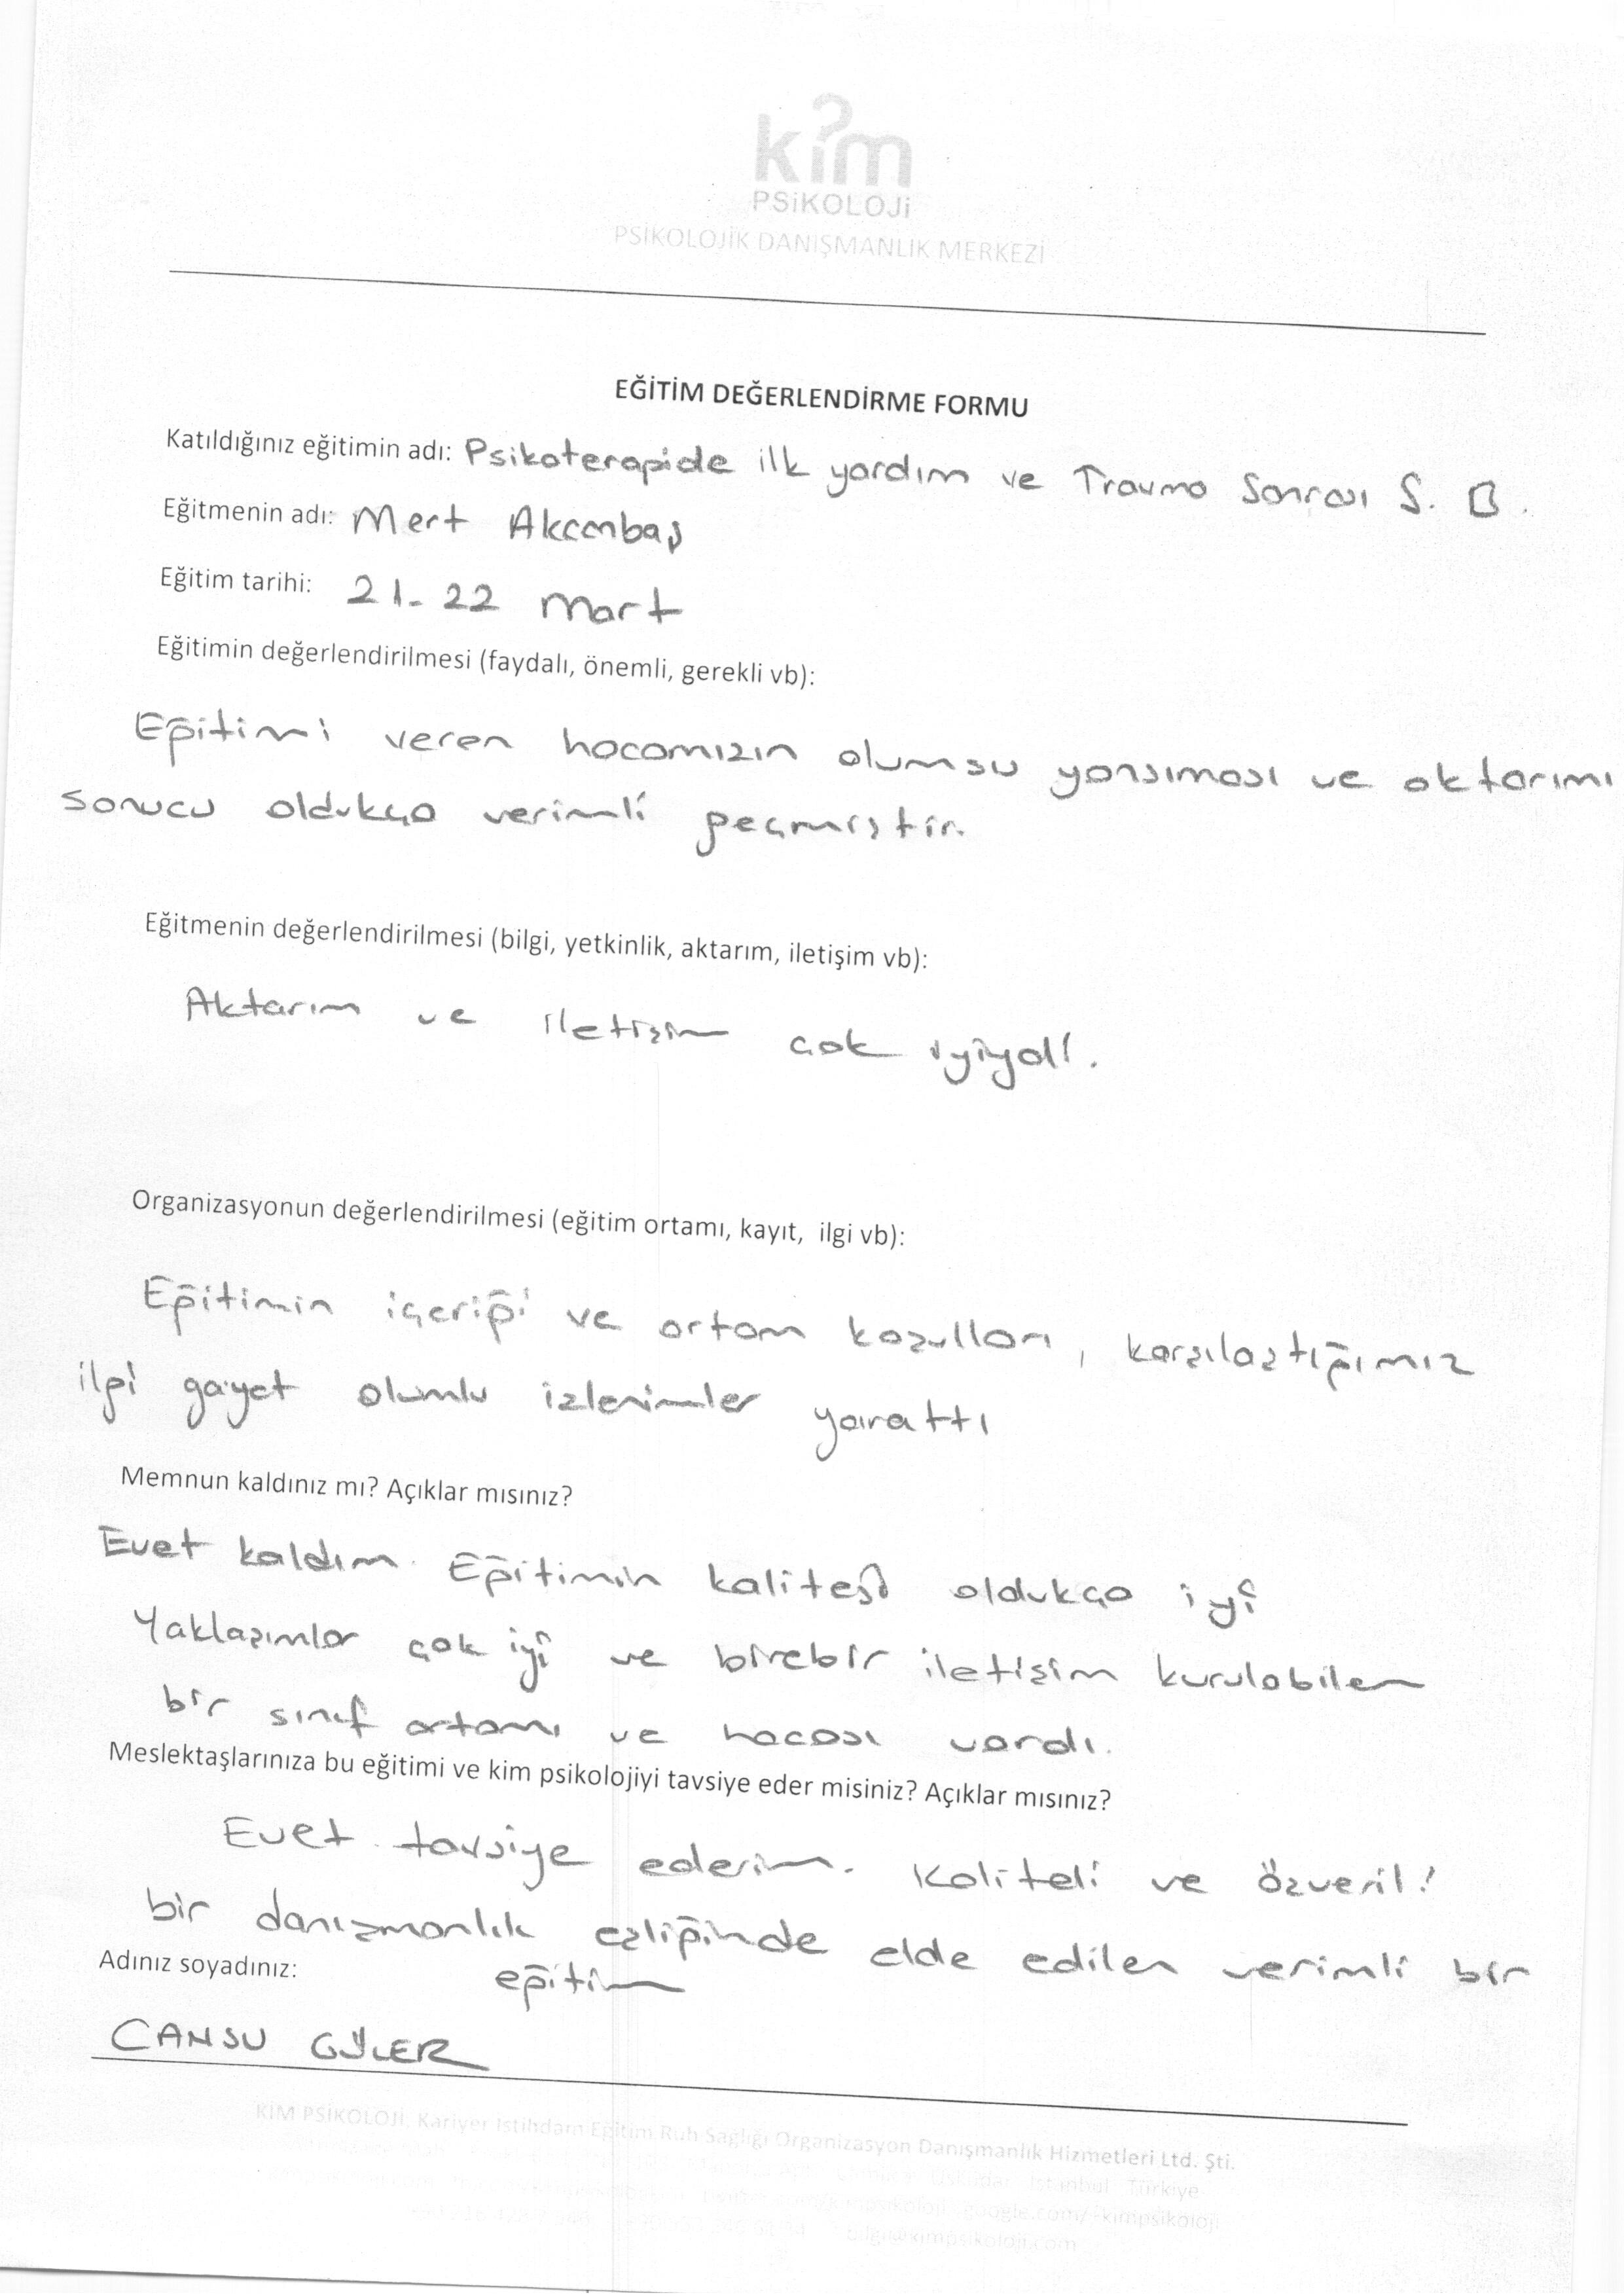 kim
PSiKOLOJi
PSİKOLOJİK DANIŞMANLIK MERKEZİ
EĞİTİM DEĞERLENDİRME FORMU
Katıldığınız eğitimin adı: Psikoterapide ilk yardım ve Travma Sonrası S. B.
Eğitmenin adı: Mert Akcanbaş
Eğitim tarihi: 21-22 Mart
Eğitimin değerlendirilmesi (faydalı, önemli, gerekli vb):
Eğitimi veren hocamızın olumsu yansıması ve aktarımı
sonucu oldukça verimli geçmiştir.
Eğitmenin değerlendirilmesi (bilgi, yetkinlik, aktarım, iletişim vb):
Aktarım ve iletişim çok iyiydi.
Organizasyonun değerlendirilmesi (eğitim ortamı, kayıt, ilgi vb):
Eğitimin içeriği ve ortam koşulları, karşılaştığımız
ilgi gayet olumlu izlenimler yarattı
Memnun kaldınız mı? Açıklar mısınız?
Evet kaldım. Eğitimin kalitesi oldukça iyi
Yaklaşımlar çok iyi ve birebir iletişim kurulabilen
bir sınıf ortamı ve hocası vardı.
Meslektaşlarınıza bu eğitimi ve kim psikolojiyi tavsiye eder misiniz? Açıklar mısınız?
Evet tavsiye ederim. Kaliteli ve özverili
bir danışmanlık eşliğinde elde edilen verimli bir
eğitim
Adınız soyadınız:
CANSU GÜLER
KİM PSİKOLOJİ, Kariyer İstihdam Eğitim Ruh Sağlığı Organizasyon Danışmanlık Hizmetleri Ltd. Şti.
Üsküdar İstanbul Türkiye
google.com/+kimpsikoloji
bilgi@kimpsikoloji.com